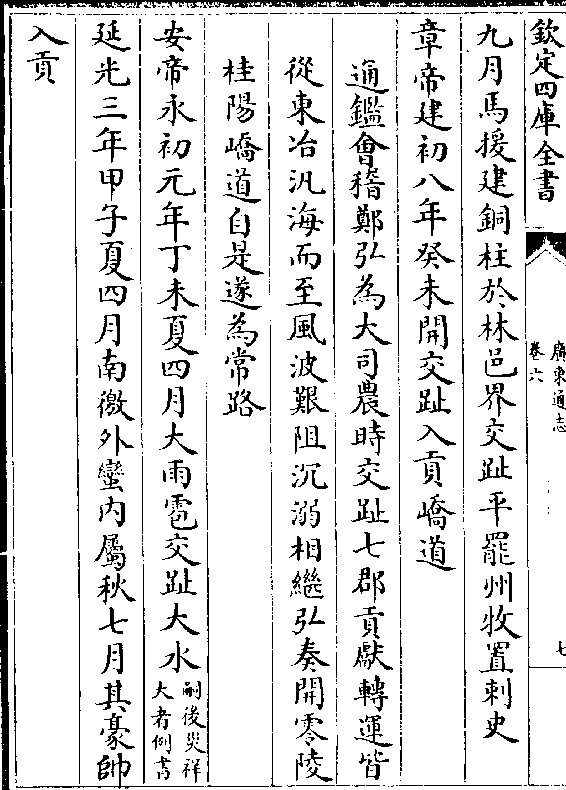 欽定四庫全書
廣東通志
卷六
七
九月馬援建銅柱於林邑界交趾平罷州牧置刺史
章帝建初八年癸未開交趾入貢嶠道
通鑑會稽鄭弘為大司農時交趾七郡貢獻轉運皆
從東冶汎海而至風波艱阻沉溺相繼弘奏開零陵
桂陽嶠道自是遂為常路
安帝永初元年丁未夏四月大雨雹交趾大水嗣後災祥
大者例書
延光三年甲子夏四月南徼外蠻內屬秋七月其豪帥
入貢